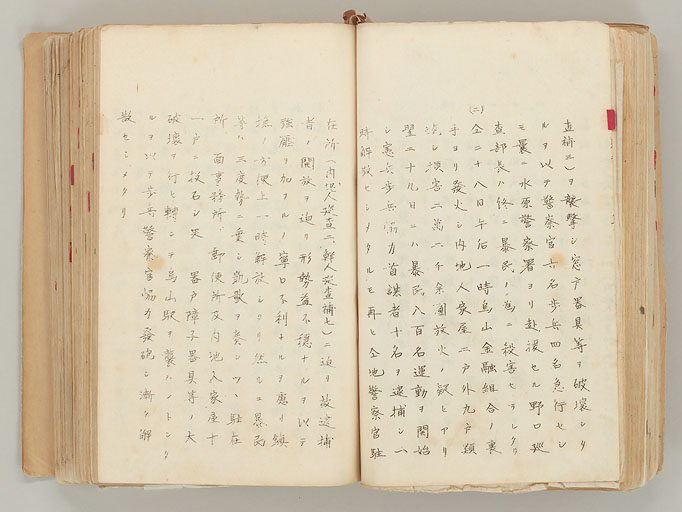 査補三)ヲ襲撃シ窓戸器具等ヲ破壊シタ
ルヲ以テ警察官六名歩兵四名急行セシ
モ曩ニ水原警察署ヨリ赴援セル野口巡
査部長ハ終ニ暴民ノ為ニ殺害セラレタリ
(二)
仝二十八日午后一時烏山金融組合ノ裏
手ヨリ發火シ内地人家屋二戸外九戸類
焼シ損害二萬二千余圓放火ノ疑ヒアリ
翌二十九日ニハ暴民八百名運動ヲ開始
シ憲兵歩兵協力首謀者十名ヲ逮捕シ一
時解散セシメタルモ再ヒ仝地警察官駐
在所(内地人巡査二、鮮人巡査補七)ニ迫リ被逮捕
者ノ開放ヲ迫リ形勢益不穏ナルヲ以テ
強壓ヲ加フルノ寧ロ不利ナルヲ慮リ
方便上一時解放シタリ然ルニ暴民
等ハ三度勢ニ乗シ凱歌ヲ奏シツヽ駐在
所面事務所郵便所及内地人家屋十
一戸ニ投石シ器戸障子器具等ノ大
破壊ヲ行ヒ轉シテ烏山駅ヲ襲ハントシタ
ルヲ以テ歩兵警察官協力發砲シ漸ク解
散セシメタリ